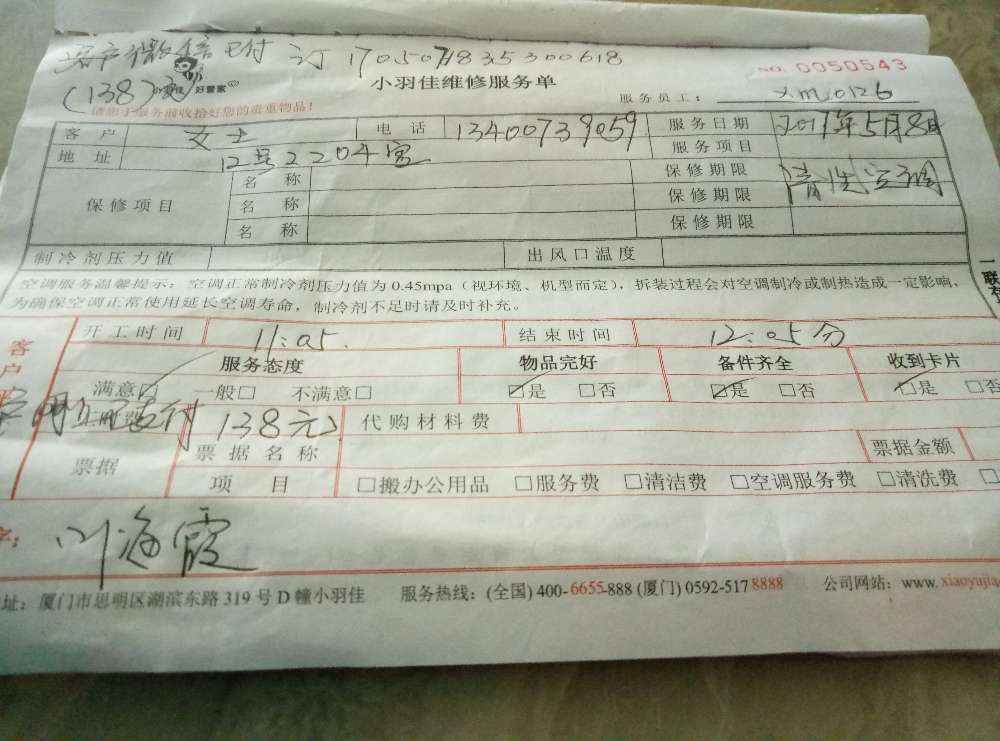 客户微信已付 订 170507183535300618
(138元) 好管家
NO. 0050543
小羽佳维修服务单
请您于服务前收拾好您的贵重物品！
服务员工： xm0126
客户 女士 电话 13400739059 服务日期 2017年5月8日
地址 12号2204室 服务项目 清洗空调
保修项目 名称 保修期限
名称 保修期限
名称 保修期限
制冷剂压力值 出风口温度
空调服务温馨提示：空调正常制冷剂压力值为0.45mpa（视环境、机型而定），拆装过程会对空调制冷或制热造成一定影响，
为确保空调正常使用延长空调寿命，制冷剂不足时请及时补充。
开工时间 11:05. 结束时间 12:05分
客户 服务态度 物品完好 备件齐全 收到卡片
满意☑ 一般□ 不满意□ ☑是 □否 ☑是 □否 ☑是 □否
付 138元 代购材料费
票据 票据名称 票据金额
项目 □搬办公用品 □服务费 □清洁费 □空调服务费 □清洗费
字： 海霞
址：厦门市思明区湖滨东路319号D幢小羽佳 服务热线：(全国) 400-6655-888 (厦门) 0592-5178888 公司网站：www.xiaoyujia